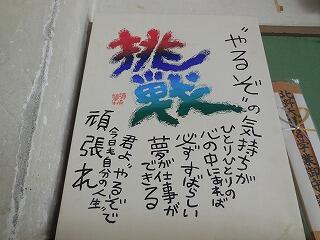 挑戦
“やるぞ”の気持ちが
ひとりひとりの
心の中にあれば
必ずすばらしい
夢が仕事が
できる
君よ“やるぞ”で
今日も自分の人生
頑張れ